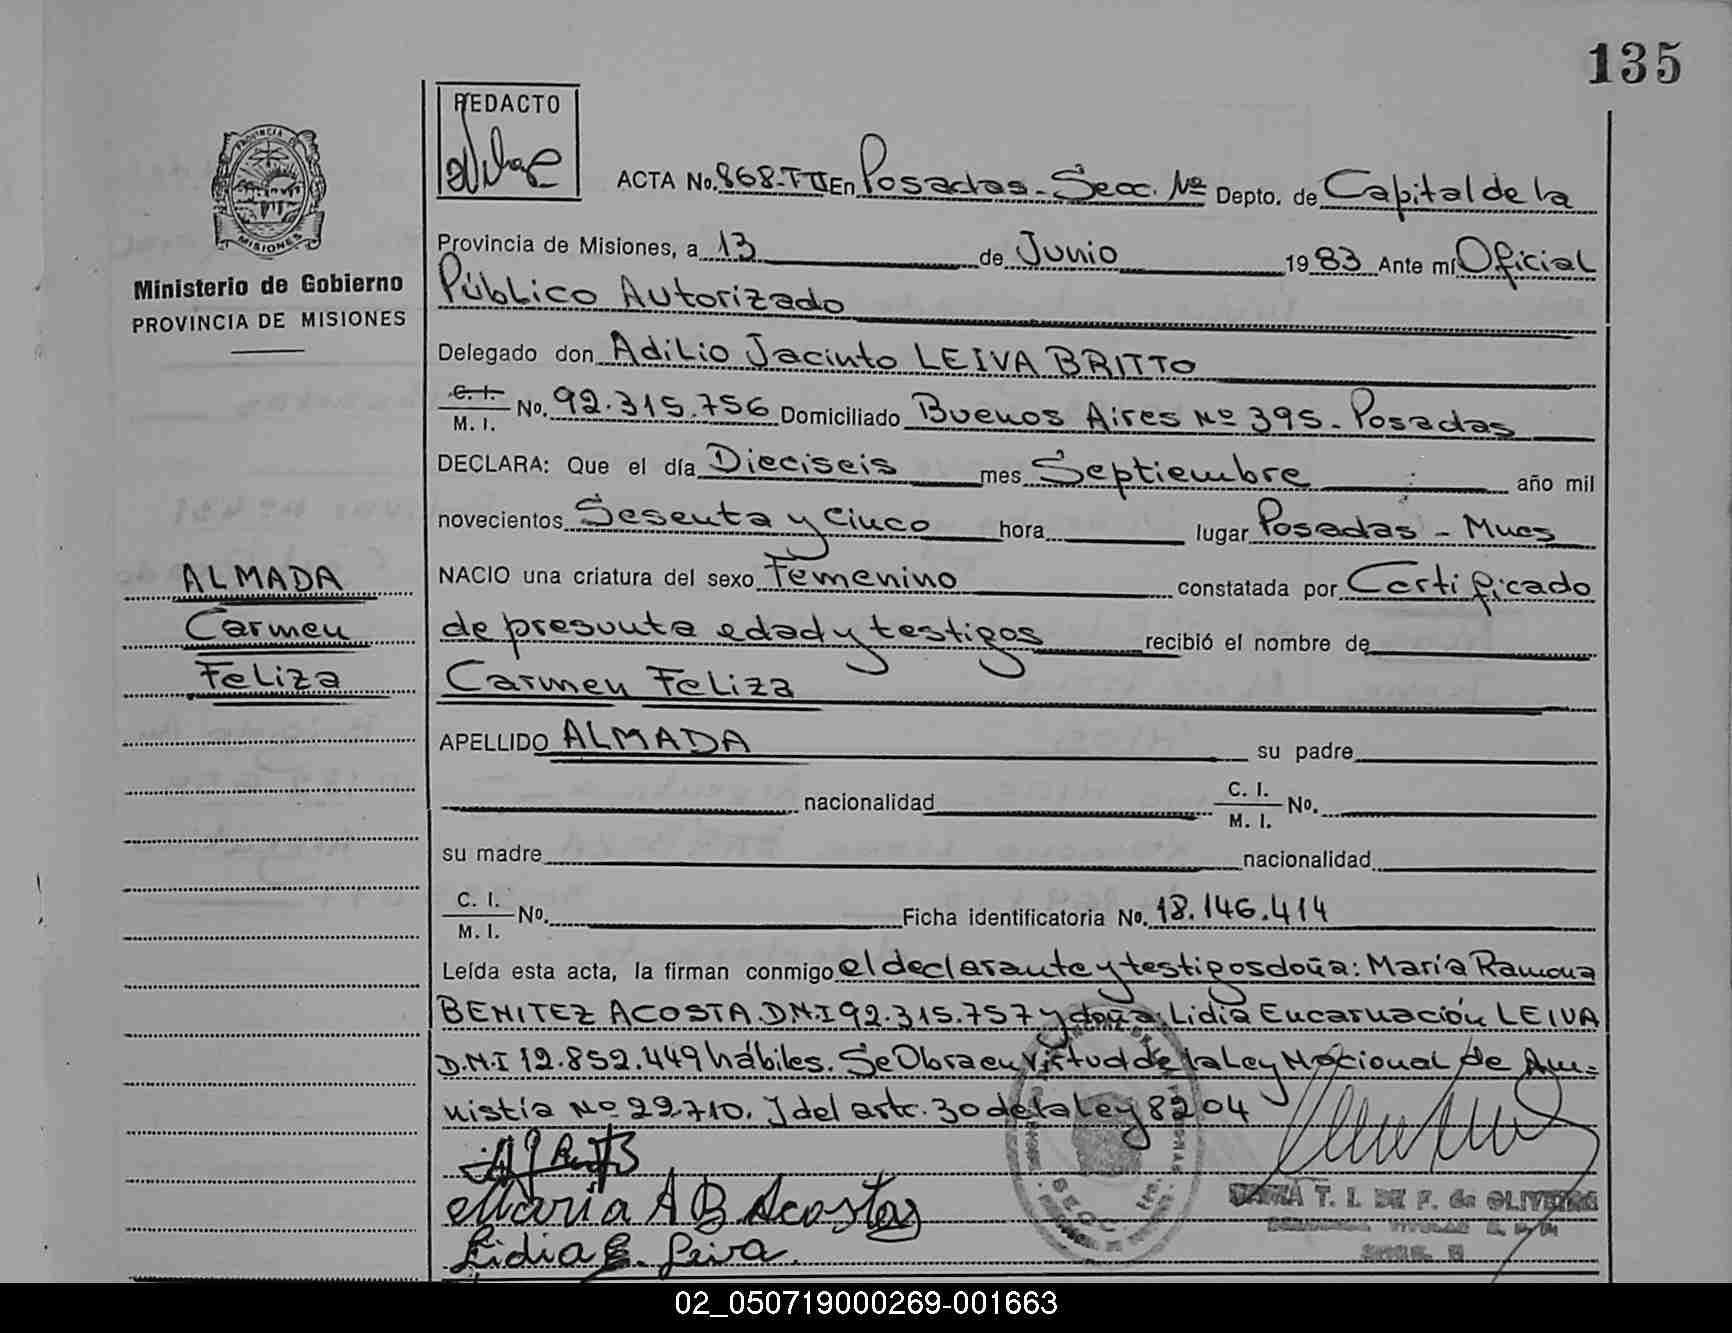 135
REDACTO
PROVINCIA DE
MISIONES
Ministerio de Gobierno
PROVINCIA DE MISIONES
ACTA No. 868-TII En Posadas - Secc. Nº Depto. de Capital de la
Provincia de Misiones, a 13 de Junio 1983 Ante mí Oficial
Público Autorizado
Delegado don Adilio Jacinto LEIVA BRITTO
C. I.
M. I. No. 92.315.756 Domiciliado Buenos Aires Nº 395 - Posadas
DECLARA: Que el día Dieciseis mes Septiembre año mil
novecientos Sesenta y Cinco hora lugar Posadas - Mnes
NACIO una criatura del sexo Femenino constatada por Certificado
de presunta edad y testigos recibió el nombre de
Carmen Feliza
ALMADA
Carmen
Feliza
APELLIDO ALMADA su padre
nacionalidad C. I. M. I. No.
su madre nacionalidad
C. I. M. I. No. Ficha identificatoria No. 18.146.414
Leída esta acta, la firman conmigo el declarante y testigos doña: María Ramona
BENITEZ ACOSTA D.N.I 92.315.757 y doña Lidia Encarnación LEIVA
D.N.I 12.852.449 hábiles. Se Obra en virtud de la Ley Nacional de Am=
nistía Nº 22.710. J del artc. 30 de la Ley 8204
María A B Acosta
Lidia E. Leiva.
T. I. DE F. de OLIVEIRA
SECC.
02_050719000269-001663